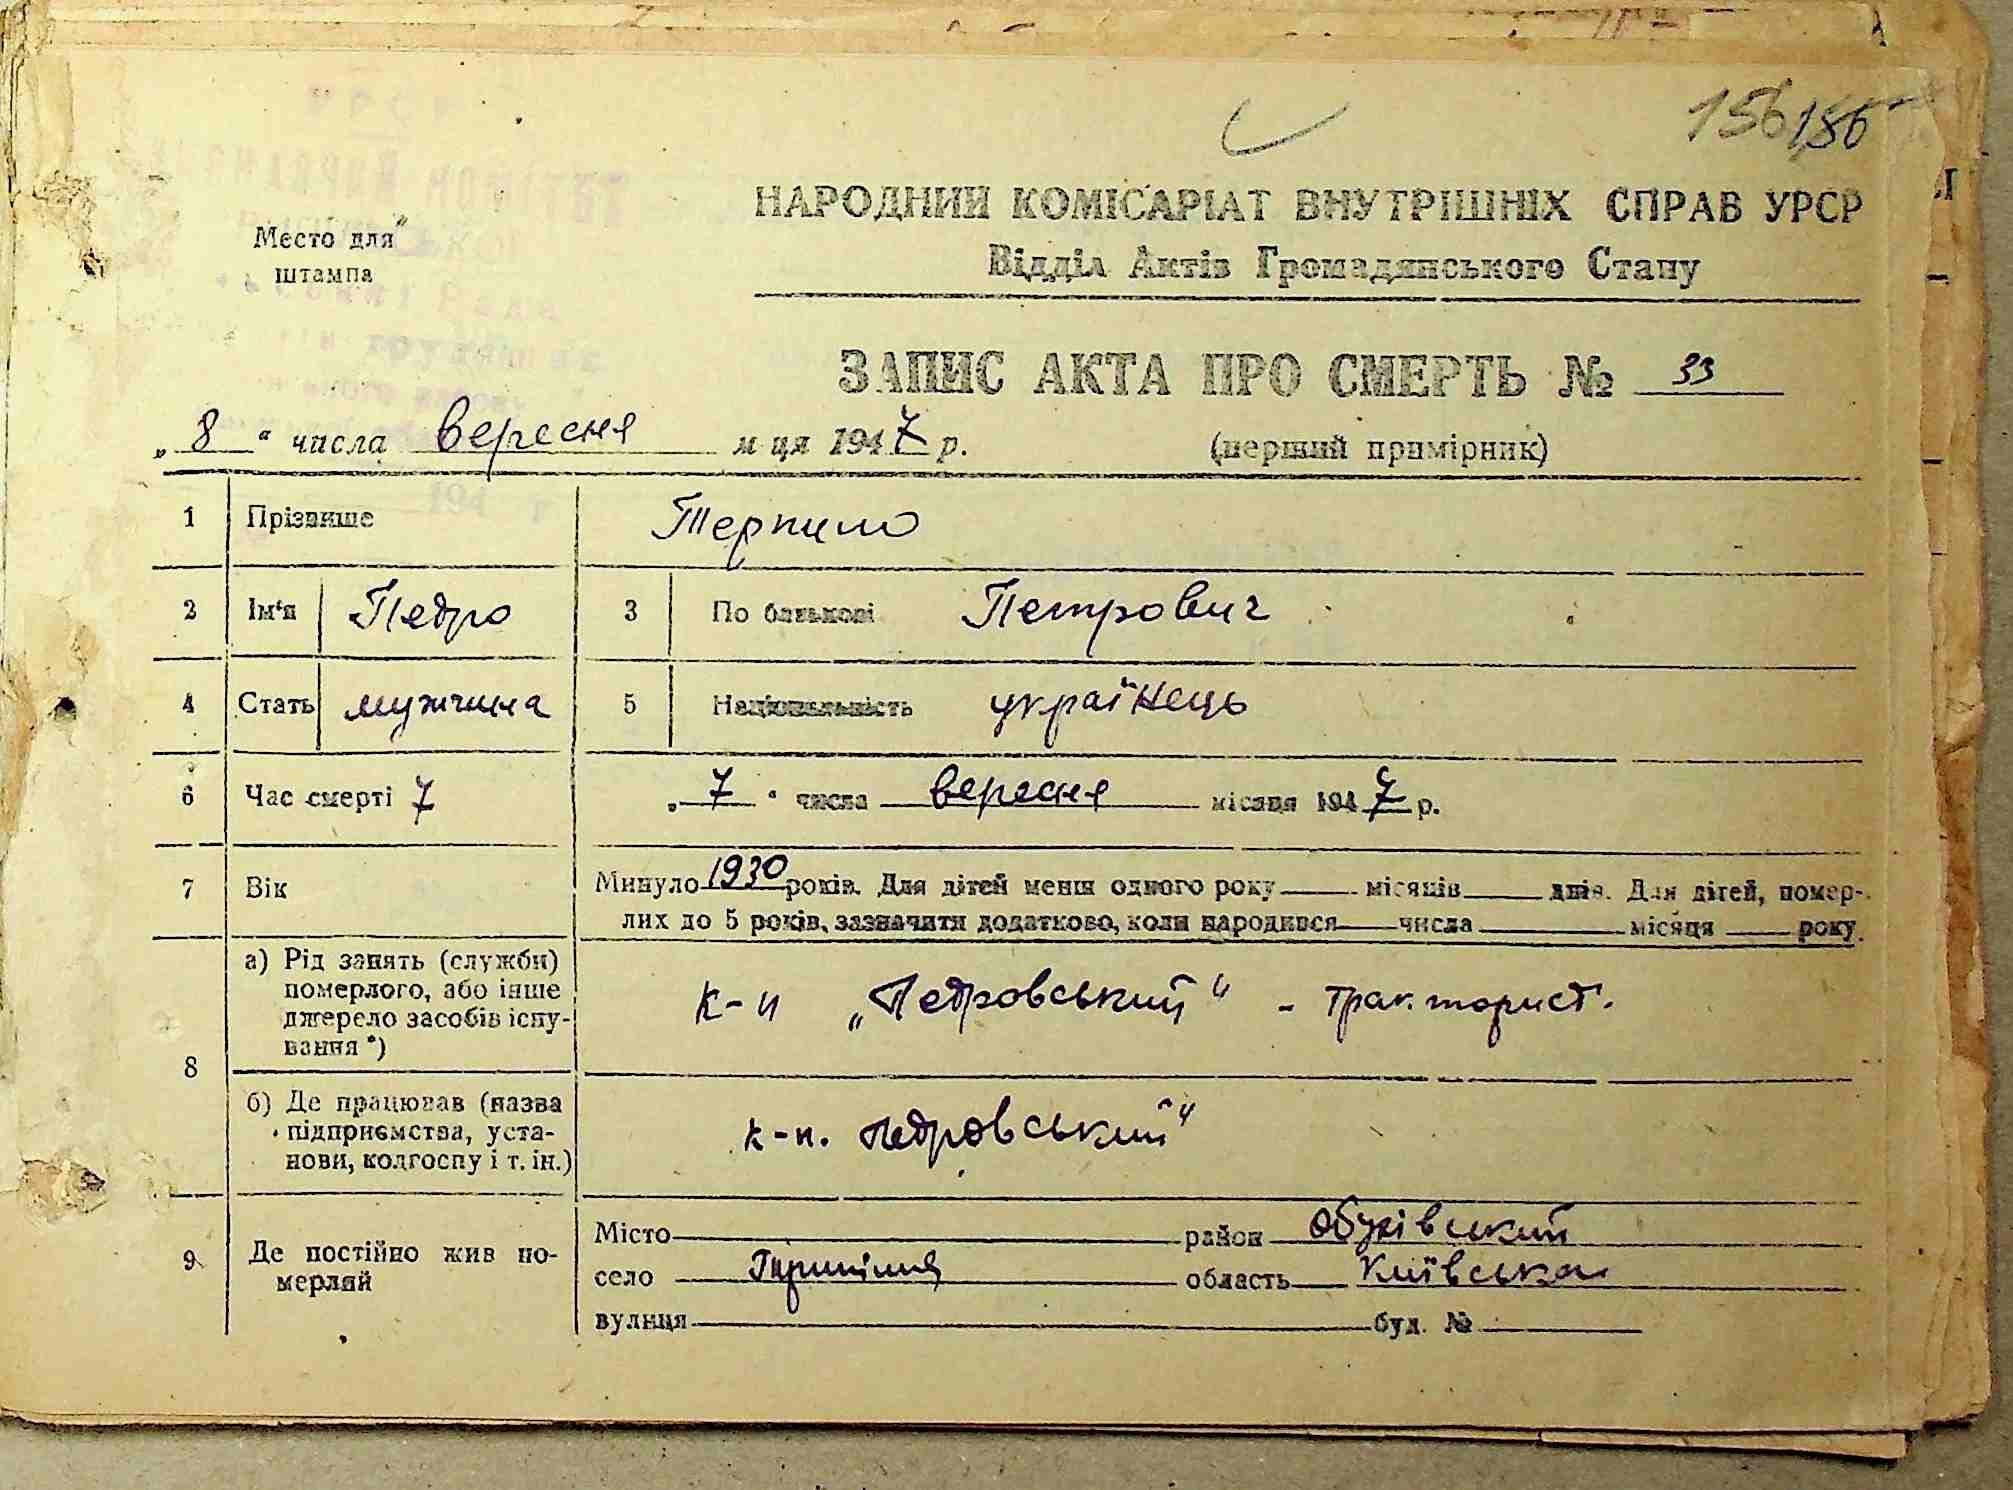 156 156
НАРОДНИЙ КОМІСАРІАТ ВНУТРІШНІХ СПРАВ УРСР
Відділ Актів Громадянського Стану
Место для
штампа
ЗАПИС АКТА ПРО СМЕРТЬ № 33
„8“ числа вересня м-ця 1947 р. (перший примірник)
1 Прізвище Терпило
2 Ім'я Педро 3 По батькові Петрович
4 Стать мужчина 5 Національність українець
6 Час смерті 7 „7“ числа вересня місяця 1947 р.
7 Вік Минуло 1930 років. Для дітей менш одного року місяців днів. Для дітей, помер-
лих до 5 років, зазначити додатково, коли народився числа місяця року.
8 а) Рід занять (служби)
померлого, або інше
джерело засобів існу-
вання *)
к-п „Петровський“ - тракторист.
б) Де працював (назва
підприємства, уста-
нови, колгоспу і т. ін.)
к-п. Петровський“
9 Де постійно жив по-
мерлий
Місто район Обухівський
село Трипілля область Київська
вулиця буд. №